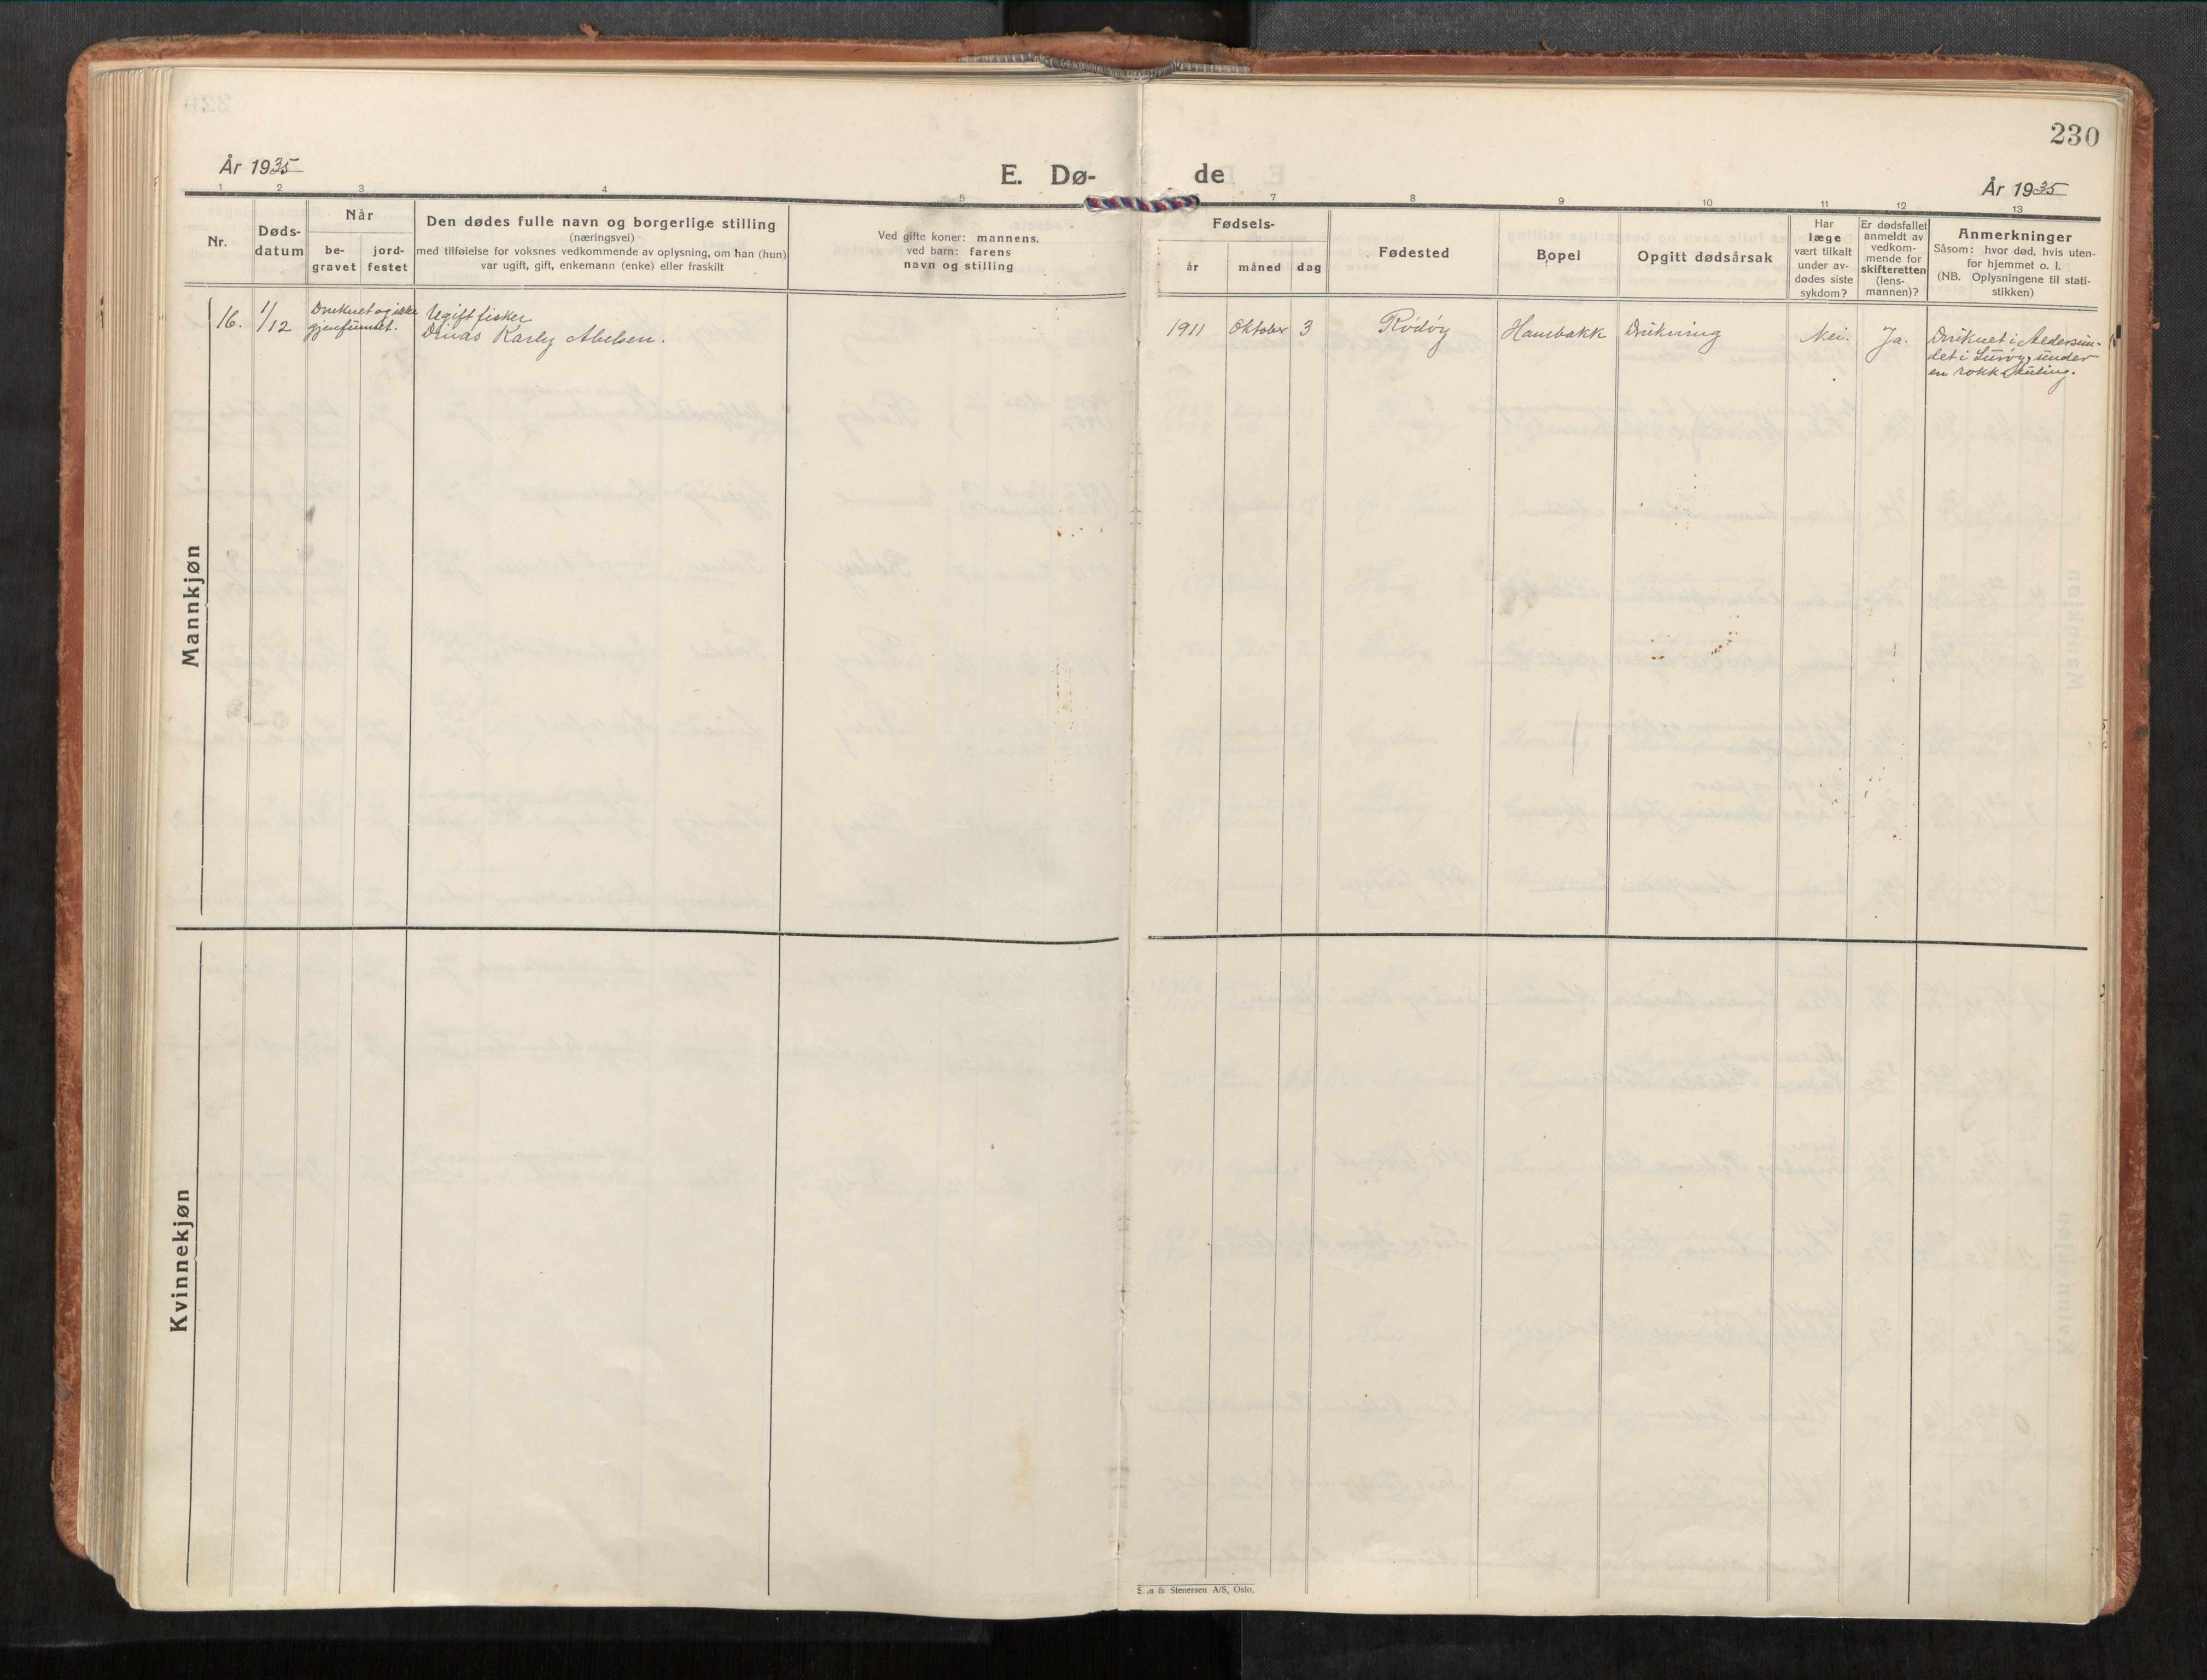 230
År 1935
E. Dø-
de
År 1935
1 2 3 4 5
7 8 9 10 11 12 13
Nr.
Døds-
datum
Når
be-
gravet
jord-
festet
Den dødes fulle navn og borgerlige stilling
(næringsvei)
med tilføielse for voksnes vedkommende av oplysning, om han (hun)
var ugift, gift, enkemann (enke) eller fraskilt
Ved gifte koner: mannens,
ved barn: farens
navn og stilling
Fødsels-
år
måned
dag
Fødested
Bopel
Opgitt dødsårsak
Har
læge
vært tilkalt
under av-
dødes siste
sykdom?
Er dødsfallet
anmeldt av
vedkom-
mende for
skifteretten
(lens-
mannen)?
Anmerkninger
Såsom: hvor død, hvis uten-
for hjemmet o. l.
(NB. Oplysningene til stati-
stikken)
Mannkjøn
16.
1/12
Druknet og ikke
gjenfunnet.
Ugift fisker
Karly Abelsen.
1911
Oktober
3
Rødøy
Hambakk
Drukning
Nei.
Ja.
Druknet i
det i Lurøy, under
en
Kvinnekjøn
& Stenersen A/S, Oslo.